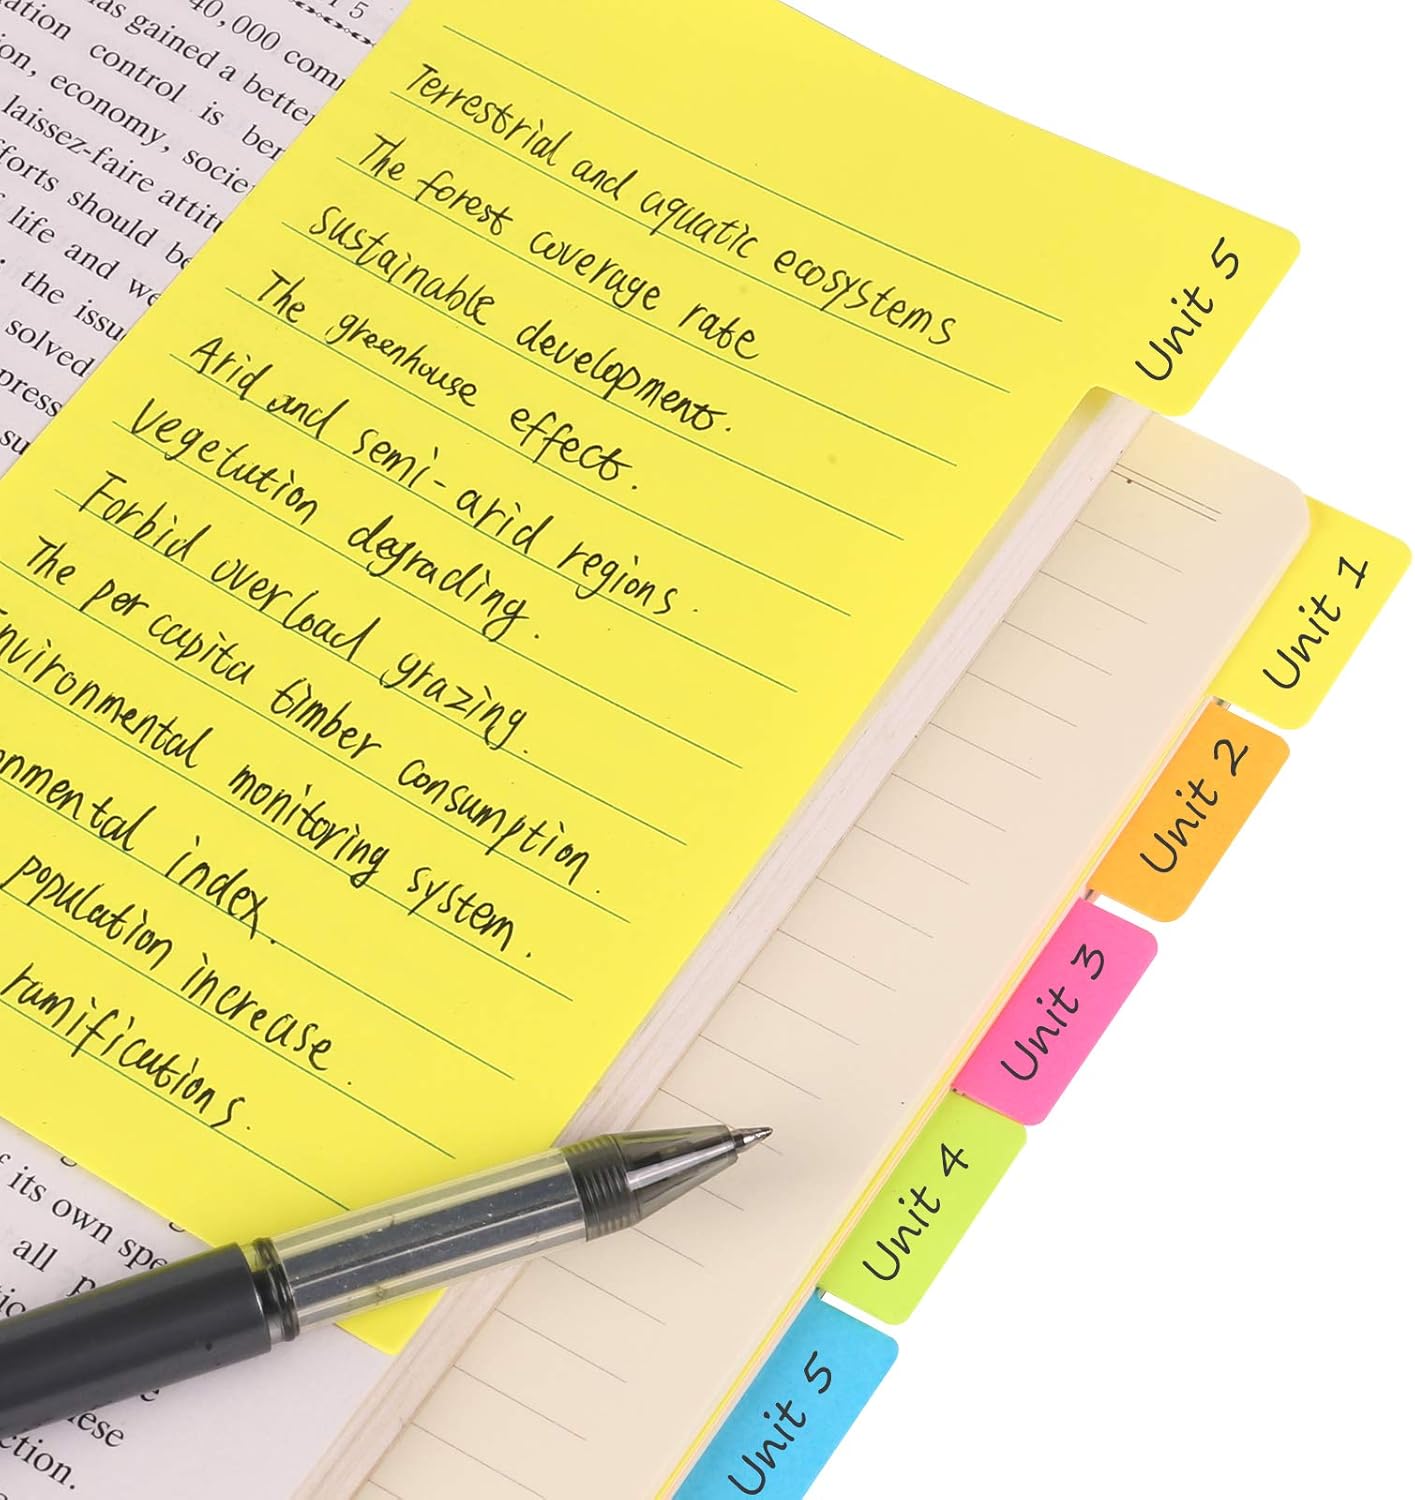 40,000 com
as gained a better
ation control is ber
on, economy, socie
laissez-faire attitu
forts should be
life and we
the issu
solved
press
su
Terrestrial and aquatic ecosystems
The forest coverage rate
Sustainable development.
The greenhouse effect.
Arid and semi-arid regions.
Vegetution degrading.
Forbid overload grazing.
The per capita timber consumption.
Environmental monitoring system.
onmental index.
population increase.
ramifications.
Unit 5
Unit 1
Unit 2
Unit 3
Unit 4
Unit 5
its own spe
all p
ese
ction.